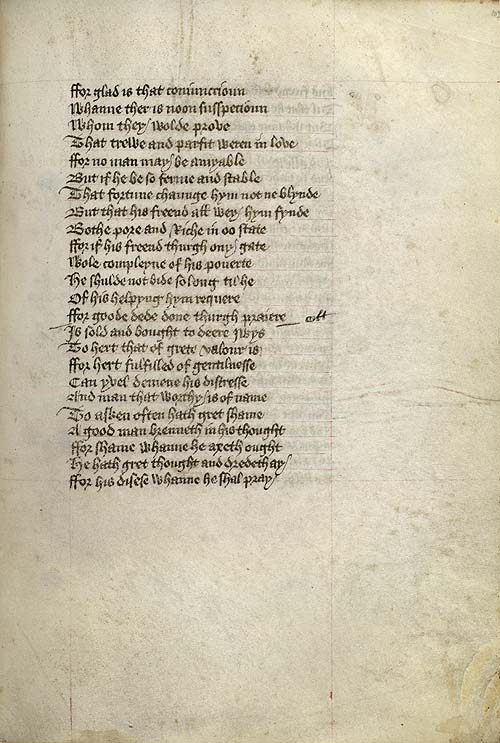 ffor glad is that coniunccioun
Whanne ther is noon susspecioun
Whom they wolde prove
That trewe and parfit weren in love
ffor no man may be amyable
But if he be so ferme and stable
That fortune chaunge hym not ne blynde
But that his freend all wey hym fynde
Bothe pore and Riche in oo state
ffor if his freend thurgh ony gate
Wole compleyne of his pouerte
He shulde not bide so long til he
Of his helpyng hym requere
ffor goode dede done thurgh praiere
Is sold and bought to deere Iwys
To hert that of grete valour is
ffor hert fulfilled of gentilnesse
Can yvel demene his distresse
And man that worthy is of name
To asken often hath gret shame
A good man brenneth in his thought
ffor shame whanne he axeth ought
He hath gret thought and dredeth ay
ffor his disese whanne he shal pray